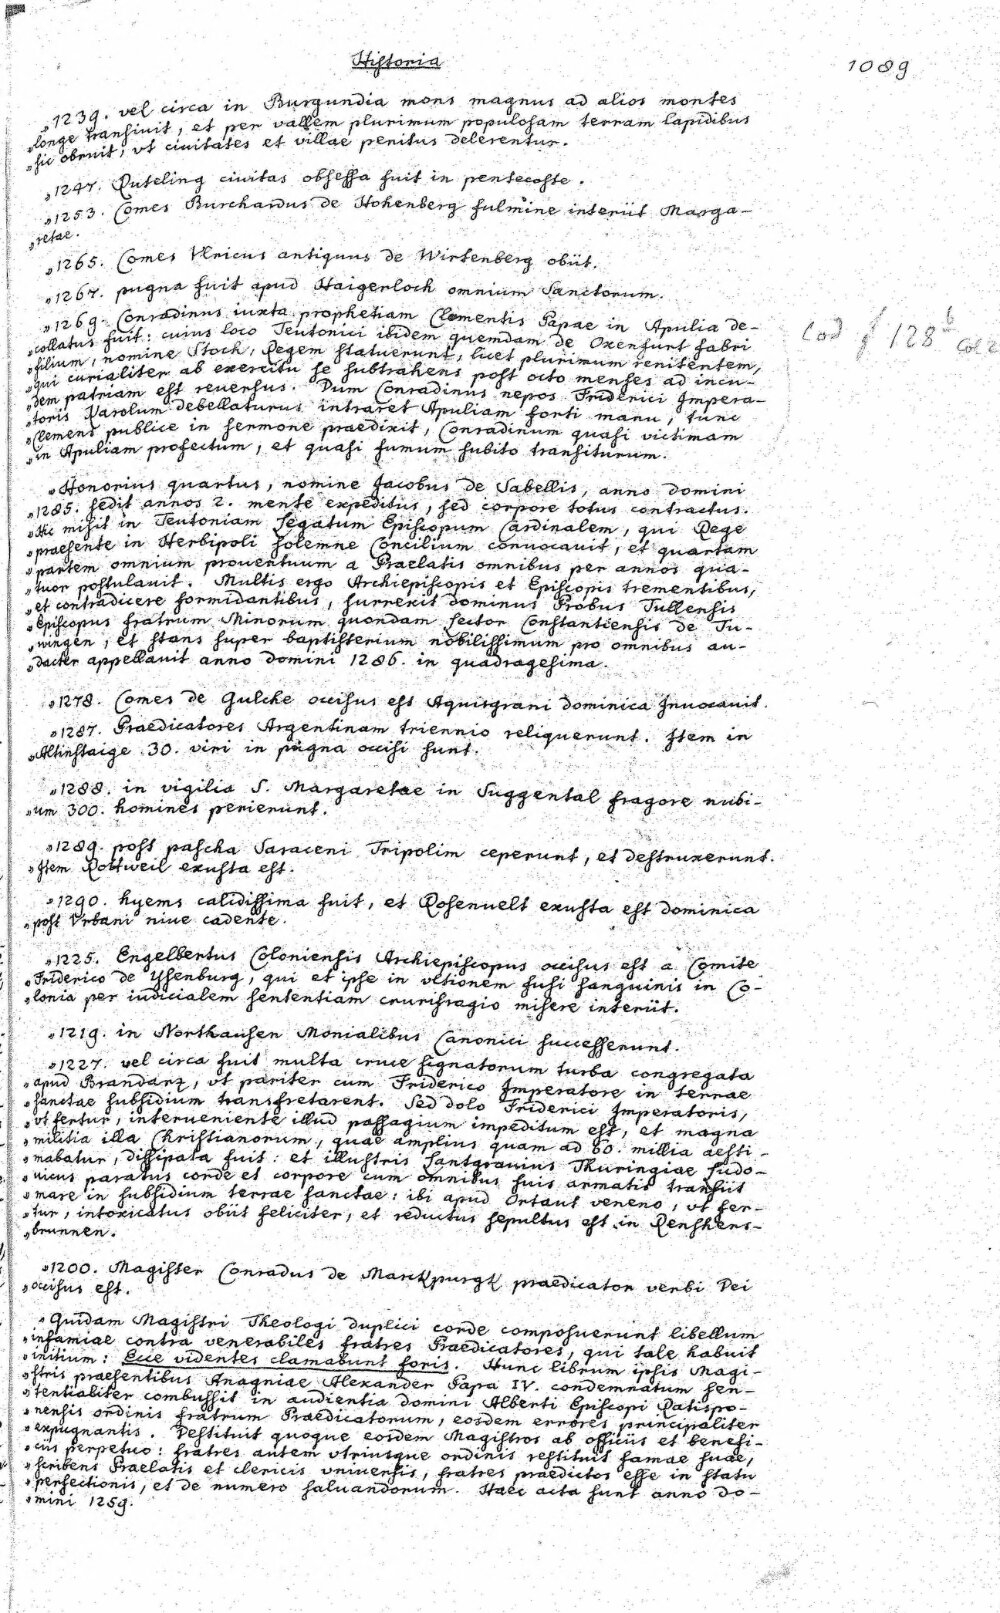 Historia
1089
„1239. vel circa in Burgundia mons magnus ad alios montes
„longe transiuit, et per vallem plurimum populosam terram lapidibus
„sic obruit, vt ciuitates et villae penitus delerentur.
„1247. Ruteling ciuitas obsessa fuit in pentecoste.
„1253. Comes Burchardus de Hohenberg fulmine interiit Marga-
„retae.
„1265. Comes Vlricus antiquus de Wirtenberg obiit.
„1267. pugna fuit apud Haigerloch omnium Sanctorum.
„1269. Conradinus iuxta prophetiam Clementis Papae in Apulia de-
„collatus fuit: cuius loco Teutonici ibidem quemdam de Oxenfunt fabri
„filium, nomine Stock, Regem statuerunt, licet plurimum renitentem,
„qui curialiter ab exercitu se subtrahens post octo menses ad incu-
„dem patriam est reuersus. Dum Conradinus nepos Friderici Impera-
„toris Karolum debellaturus intraret Apuliam forti manu, tunc
„Clemens publice in sermone praedixit, Conradinum quasi victimam
„in Apuliam profectum, et quasi fumum subito transiturum.
Cod f 128 b col 2
„Honorius quartus, nomine Jacobus de Sabellis, anno domini
„1285. sedit annos 2. mente expeditus, sed corpore totus contractus.
„Hic misit in Teutoniam Legatum Episcopum Cardinalem, qui Rege
„praesente in Herbipoli solemne Concilium conuocauit, et quartam
„partem omnium prouentuum a Praelatis omnibus per annos qua-
„tuor postulauit. Multis ergo Archiepiscopis et Episcopis trementibus,
„et contradicere formidantibus, surrexit dominus Probus Tullensis
„Episcopus fratrum Minorum quondam Lector Constantiensis de Tu-
„wingen, et stans super baptisterium nobilissimum pro omnibus au-
„dacter appellauit anno domini 1286. in quadragesima.
„1278. Comes de Gulcke occisus est Aquisgrani dominica Inuocauit.
„1287. Praedicatores Argentinam triennio reliquerunt. Item in
„Altinstaige 30. viri in pugna occisi sunt.
„1288. in vigilia S. Margaretae in Suggental fragore nubi-
„um 300. homines perierunt.
„1289. post pascha Saraceni Tripolim ceperunt, et destruxerunt.
„Item Rottweil exusta est.
„1290. hyems calidissima fuit, et Rosenuelt exusta est dominica
„post Vrbani niue cadente.
„1225. Engelbertus Coloniensis Archiepiscopus occisus est a Comite
„Friderico de Ysenburg, qui et ipse in vltionem fusi sanguinis in Co-
„lonia per iudicialem sententiam crurifragio misere interiit.
„1219. in Northausen Monialibus Canonici successerunt.
„1227. vel circa fuit multa cruce signatorum turba congregata
„apud Brandanz, vt pariter cum Friderico Imperatore in terrae
„sanctae subsidium transfretarent. Sed dolo Friderici Imperatoris,
„vt fertur, interueniente illud passagium impeditum est, et magna
„militia illa Christianorum, quae amplius quam ad 60. millia aesti-
„mabatur, dissipata fuit: et illustris Lantgrauius Thuringiae Ludo-
„uicus paratus corde et corpore cum omnibus suis armatis transiit
„mare in subsidium terrae sanctae: ibi apud Ortaut veneno, vt fer-
„tur, intoxicatus obiit feliciter, et reductus sepultus est in Renshens-
„brunnen.
„1200. Magister Conradus de Marckpurgk praedicator verbi Dei
„occisus est.
„Quidam Magistri Theologi duplici corde composuerunt libellum
„infamiae contra venerabiles fratres Praedicatores, qui tale habuit
„initium: Ecce videntes clamabunt foris. Hunc librum ipsis Magi-
„stris praesentibus Anagniae Alexander Papa IV. condemnatum sen-
„tentialiter combussit in audientia domini Alberti Episcopi Ratispo-
„nensis ordinis fratrum Praedicatorum, eosdem errores principaliter
„expugnantis. Destituit quoque eosdem Magistros ab officiis et benefi-
„ciis perpetuo: fratres autem vtriusque ordinis restituit famae suae,
„scribens Praelatis et clericis vniuersis, fratres praedictos esse in statu
„perfectionis, et de numero saluandorum. Haec acta sunt anno do-
„mini 1259.